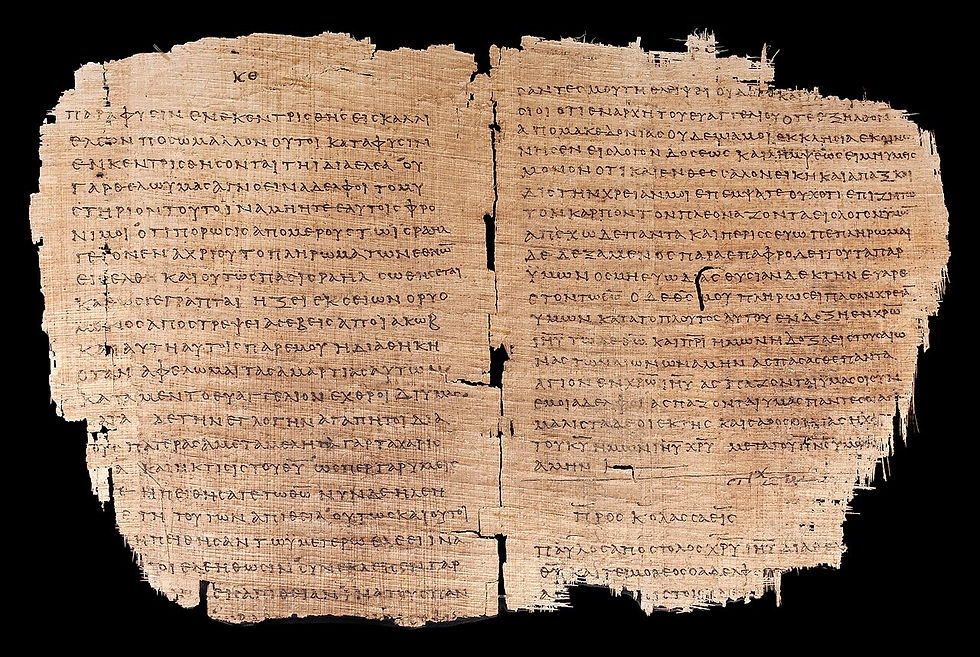 ΚΘ
ΠΑΡΑΦΥϹΙΝΕΝΕΚΕΝΤΡΙϹΘΗϹΕΙϹΚΑΛΛΙ
ΕΛΕΟΝΠΟϹΩΜΑΛΛΟΝΟΥΤΟΙΚΑΤΑΦΥϹΙΝ
ΕΝΚΕΝΤΡΙϹΘΗϹΟΝΤΑΙΤΗΙΔΙΑΕΛΕΑΟΥ
ΓΑΡΘΕΛΩΥΜΑϹΑΓΝΟΕΙΝΑΔΕΛΦΟΙΤΟΜΥ
ϹΤΗΡΙΟΝΤΟΥΤΟΙΝΑΜΗΗΤΕΕΑΥΤΟΙϹΦΡΟ
ΝΙΜΟΙΟΤΙΠΩΡΩϹΙϹΑΠΟΜΕΡΟΥϹΤΩΙϹΡΑΗΛ
ΓΕΓΟΝΕΝΑΧΡΙΟΥΤΟΠΛΗΡΩΜΑΤΩΝΕΘΝΩ
ΕΙϹΕΛΘΗΚΑΙΟΥΤΩϹΠΑϹΙϹΡΑΗΛϹΩΘΗϹΕΤΑΙ
ΚΑΘΩϹΓΕΓΡΑΠΤΑΙΗΞΕΙΕΚϹΕΙΩΝΟΡΥΟ
ΑΠΟϹΤΡΕΨΕΙΑϹΕΒΕΙϹΑΠΟΙΑΚΩΒ
ΚΑΙΑΥΤΗΑΥΤΟΙϹΠΑΡΕΜΟΥΗΔΙΑΘΗΚΗ
ΟΤΑΝΑΦΕΛΩΜΑΙΤΑϹΑΜΑΡΤΙΑϹΑΥΤΩΝ
ΚΑΤΑΜΕΝΤΟΕΥΑΓΓΕΛΙΟΝΕΧΘΡΟΙΔΙΥΜΑϹ
ΔΕΤΗΝΕΓΛΟΓΗΝΑΓΑΠΗΤΟΙΔΙΑ
ΠΑΤΕΡΑϹΑΜΕΤΑΜΕΛΗΤΑΓΑΡΤΑΧΑΡΙϹ
ΚΑΙΗΚΛΗϹΙϹΤΟΥΘΥΩϹΠΕΡΓΑΡΥΜΕΙϹ
ΗΠΕΙΘΗϹΑΤΕΤΩΘΩΝΥΝΔΕΗΛΕΗ
ΤΗΤΟΥΤΩΝΑΠΙΘΕΙΑΟΥΤΩϹΚΑΙΟΥΤΟΙ
ΗΠΕΙΘΗϹΑΝΤΩΥΜΕΤΕΡΩΕΛΕΕΙΙΝΑ
ΤΟΙΕΛΕΗΘΩϹΙΝϹΥΝΕΚΛΕΙϹΕΝΓΑΡ
ΕΙϹΑΠΙΘΙΑΝΙΝΑΤΟΥϹΠΑΝ
ϹΑΝΤΕϹΜΟΥΤΗΘΛΕΙΨΕΙΟΙΔΑΤΕ
ϹΙΟΙΟΤΙΕΝΑΡΧΗΤΟΥΕΥΑΓΓΕΛΙΟΥΟΤΕΕΞΗΛΘΟΝ
ΑΠΟΜΑΚΕΔΟΝΙΑϹΟΥΔΕΜΙΑΜΟΙΕΚΚΛΗϹΙΑΕΚΟΙΝΩ
ΝΗϹΕΝΕΙϹΛΟΓΟΝΔΟϹΕΩϹΚΑΙΛΗΜΨΕΩϹΕΙΜΗΥΜΕΙϹ
ΜΟΝΟΙΟΤΙΚΑΙΕΝΘΕϹϹΑΛΟΝΕΙΚΗΚΑΙΑΠΑΞΚΑΙ
ΔΙϹΤΗΝΧΡΕΙΑΝΜΟΙΕΠΕΜΨΑΤΕΟΥΧΟΤΙΕΠΙΖΗΤΩ
ΤΟΝΚΑΡΠΟΝΤΟΝΠΛΕΟΝΑΖΟΝΤΑΕΙϹΛΟΓΟΝΥΜΩ
ΑΠΕΧΩΔΕΠΑΝΤΑΚΑΙΠΕΡΙϹϹΕΥΩΠΕΠΛΗΡΩΜΑΙ
ΔΕΔΕΞΑΜΕΝΟϹΠΑΡΑΕΠΑΦΡΟΔΕΙΤΟΥΤΑΠΑΡ
ΥΜΩΝΟϹΜΗΝΕΥΩΔΙΑϹΘΥϹΙΑΝΔΕΚΤΗΝΕΥΑΡΕ
ϹΤΟΝΤΩΘΩΟΔΕΘϹΜΟΥΠΛΗΡΩϹΕΙΠΑϹΑΝΧΡΕΙΑ
ΥΜΩΝΚΑΤΑΤΟΠΛΟΥΤΟϹΑΥΤΟΥΕΝΔΟΞΗΕΝΧΡΩ
ΙΗΥΤΩΔΕΘΩΚΑΙΠΡΙΗΜΩΝΗΔΟΞΑΕΙϹΤΟΥϹΑΙΩ
ΝΑϹΤΩΝΑΙΩΝΩΝΑΜΗΝΑϹΠΑϹΑϹΘΕΠΑΝΤΑ
ΑΓΙΟΝΕΝΧΡΩΙΗΥΑϹΠΑΖΟΝΤΑΙΥΜΑϹΟΙϹΥΝ
ΕΜΟΙΑΔΕΛΦΟΙΑϹΠΑΖΟΝΤΑΙΥΜΑϹΠΑΝΤΕϹΟΙΑΓ
ΜΑΛΙϹΤΑΔΕΟΙΕΚΤΗϹΚΑΙϹΑΡΟϹΟΙΚΙΑϹΗΧ
ΤΟΥΚΥΗΜΩΝΙΗΥΧΡΥΜΕΤΑΤΟΥΠΝϹΥΜΩ
ΑΜΗΝ
ϹΤΙΧ
ΠΡΟϹΚΟΛΑϹϹΑΕΙϹ
ΠΑΥΛΟϹΑΠΟϹΤΟΛΟϹΧΡΥΙΗΥΔΙΑΘΕΛΗ
ΘΥΚΑΙΤΕΙΜΟΘΕΟϹΟΑΔΕΛΦ